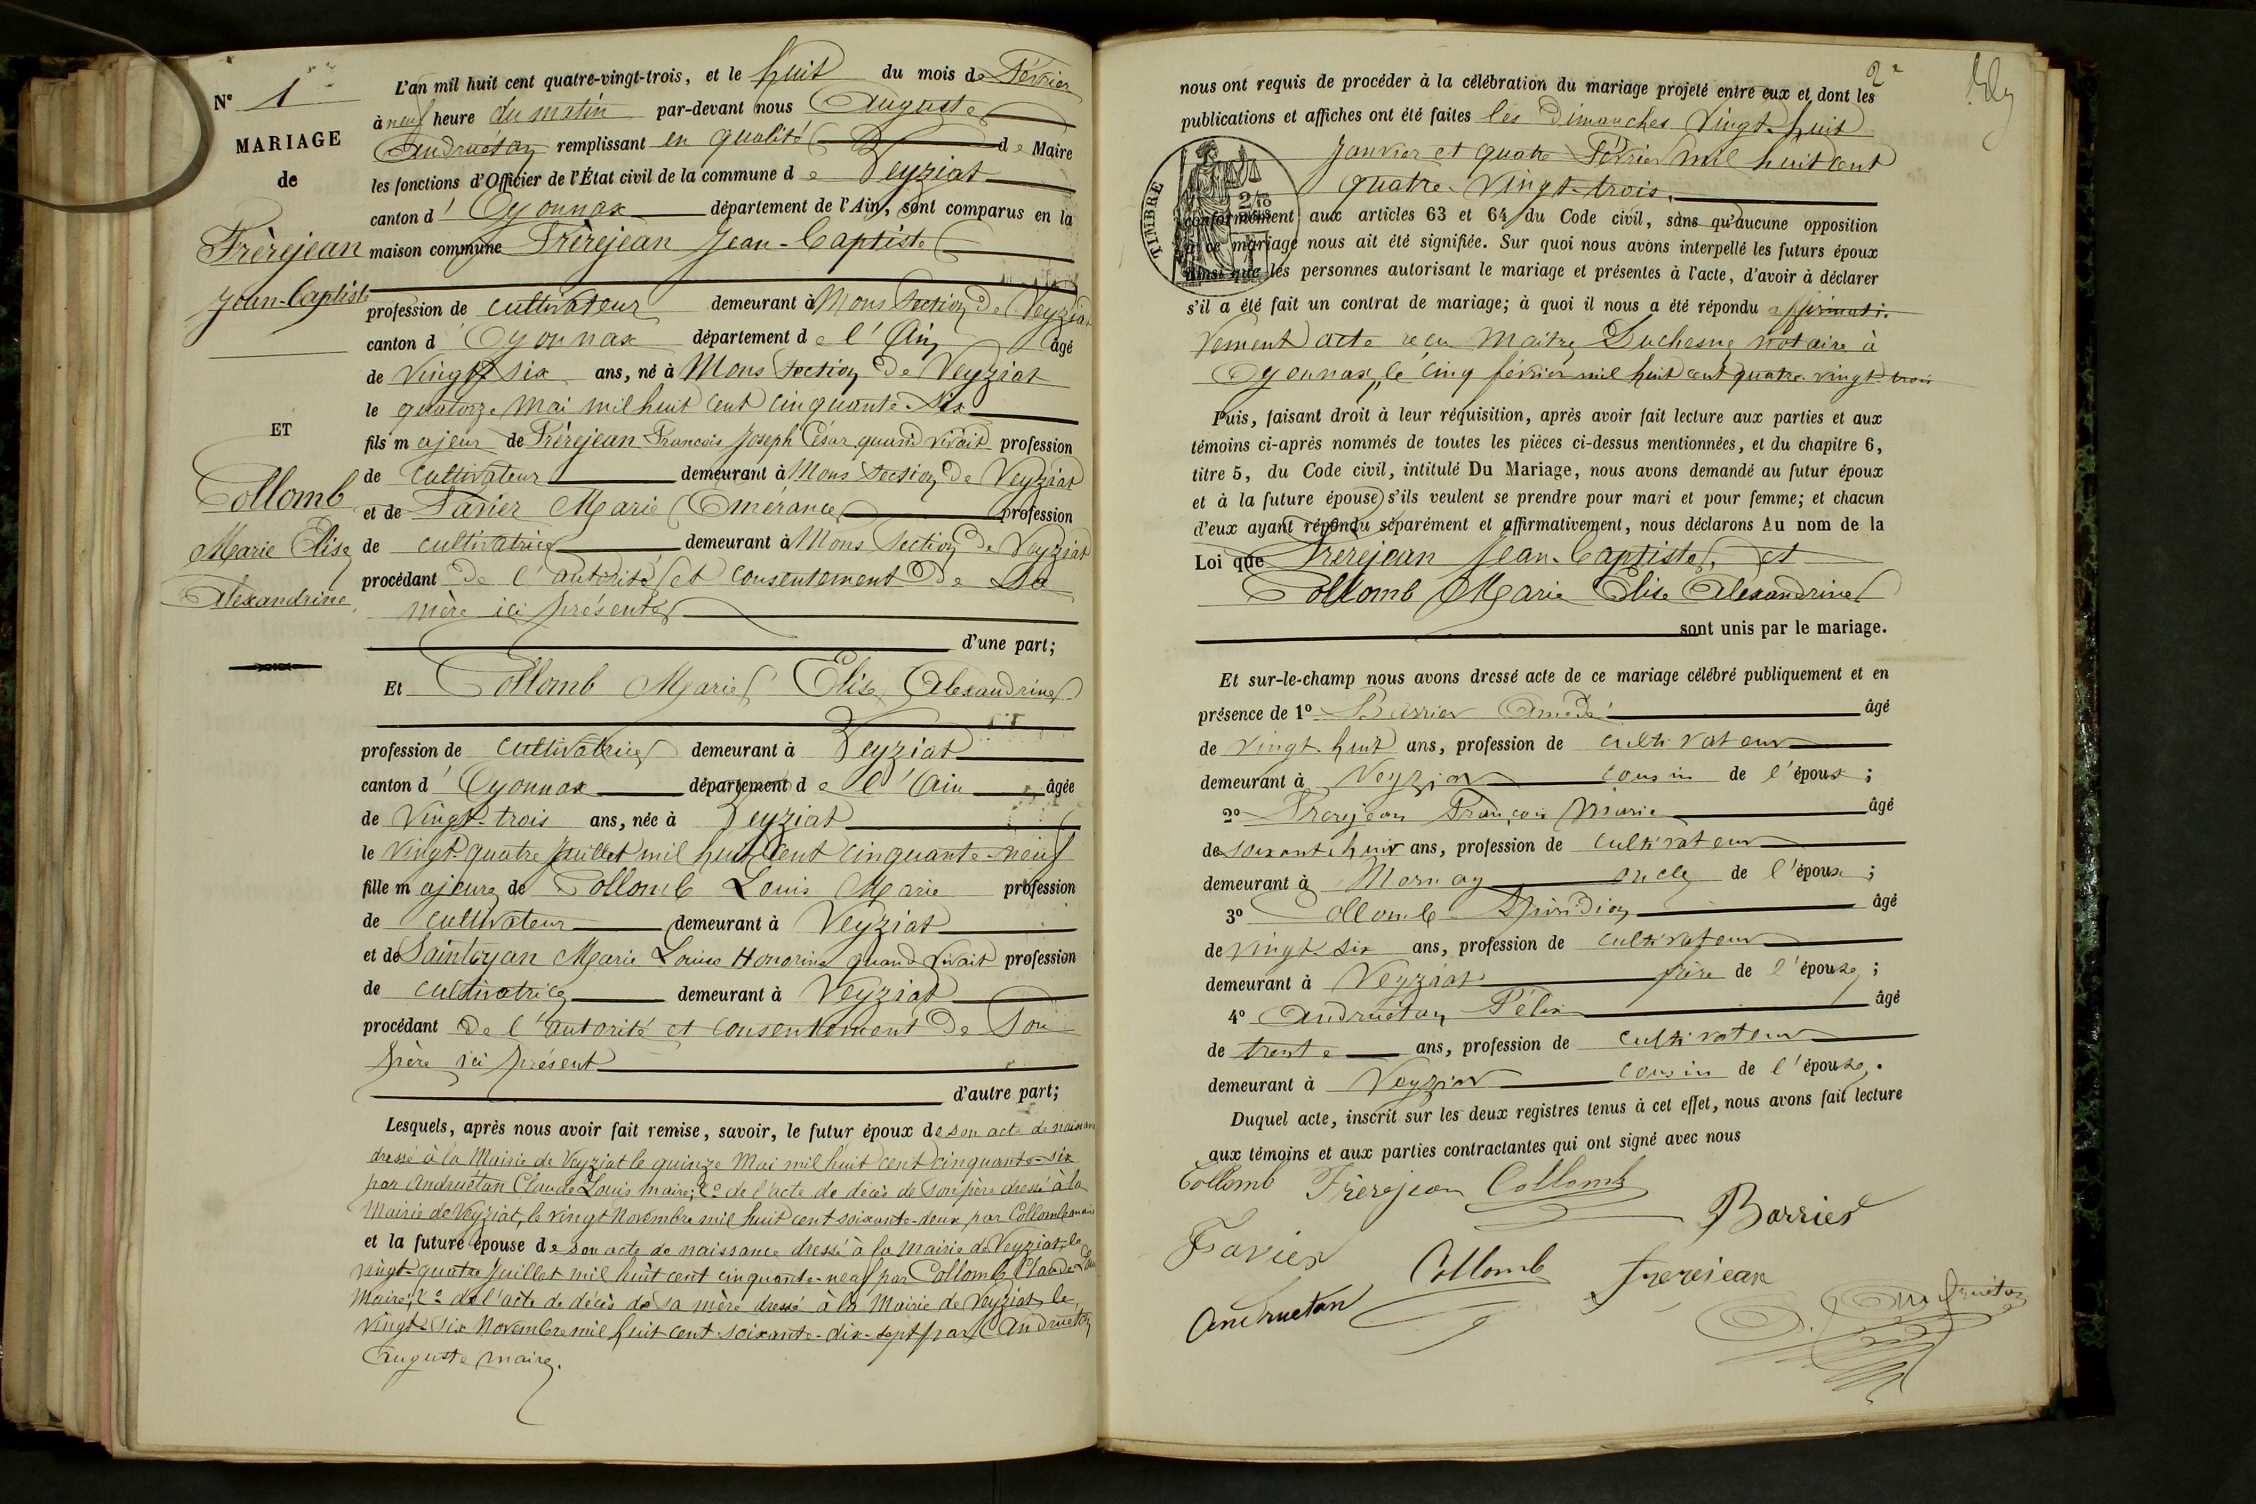 N° 1
MARIAGE
de
Frèrejean
Jean-Baptiste
ET
Collomb
Marie Elise
Alexandrine
L'an mil huit cent quatre-vingt-trois, et le huit du mois de Février
à neuf heure du matin par-devant nous Auguste
Andruétan remplissant en qualité de Maire
les fonctions d'Officier de l'État civil de la commune de Veyziat
canton d'Oyonnax département de l'Ain, sont comparus en la
maison commune Frèrejean Jean-Baptiste
profession de cultivateur demeurant à Mons section de Veyziat
canton d'Oyonnax département de l'Ain âgé
de vingt six ans, né à Mons section de Veyziat
le quatorze Mai mil huit cent cinquante-six
fils majeur de Frèrejean François Joseph César quand vivait profession
de cultivateur demeurant à Mons section de Veyziat
et de Favier Marie Emérance profession
de cultivatrice demeurant à Mons section de Veyziat
procédant de l'autorité et consentement de sa
mère ici présente
d'une part;
Et Collomb Marie Elise Alexandrine
profession de cultivatrice demeurant à Veyziat
canton d'Oyonnax département de l'Ain âgée
de vingt-trois ans, née à Veyziat
le vingt-quatre Juillet mil huit cent cinquante-neuf
fille majeure de Collomb Louis Marie profession
de cultivateur demeurant à Veyziat
et de Saintoyan Marie Louise Honorine quand vivait profession
de cultivatrice demeurant à Veyziat
procédant de l'autorité et consentement de son
père ici présent
d'autre part;
Lesquels, après nous avoir fait remise, savoir, le futur époux de son acte de naissance
dressé à la Mairie de Veyziat le quinze Mai mil huit cent cinquante-six
par Andruétan Claude Louis maire; 2° de l'acte de décès de son père dressé à la
Mairie de Veyziat, le vingt Novembre mil huit cent soixante-deux par Collomb maire
et la future épouse de son acte de naissance dressé à la Mairie de Veyziat, le
vingt-quatre Juillet mil huit cent cinquante-neuf par Collomb Claude
Maire; 2° de l'acte de décès de sa mère dressé à la Mairie de Veyziat, le
vingt-six Novembre mil huit cent soixante-dix-sept par Andruétan
Auguste maire.
2
nous ont requis de procéder à la célébration du mariage projeté entre eux et dont les
publications et affiches ont été faites les dimanches vingt-huit
Janvier et quatre Février mil huit cent
quatre-vingt-trois,
TIMBRE
conformément aux articles 63 et 64 du Code civil, sans qu'aucune opposition
à ce mariage nous ait été signifiée. Sur quoi nous avons interpellé les futurs époux
ainsi que les personnes autorisant le mariage et présentes à l'acte, d'avoir à déclarer
s'il a été fait un contrat de mariage; à quoi il nous a été répondu affirmati-
vement acte reçu Maître Duchesne notaire à
Oyonnax, le cinq février mil huit cent quatre-vingt-trois
Puis, faisant droit à leur réquisition, après avoir fait lecture aux parties et aux
témoins ci-après nommés de toutes les pièces ci-dessus mentionnées, et du chapitre 6,
titre 5, du Code civil, intitulé Du Mariage, nous avons demandé au futur époux
et à la future épouse s'ils veulent se prendre pour mari et pour femme; et chacun
d'eux ayant répondu séparément et affirmativement, nous déclarons Au nom de la
Loi que Frèrejean Jean-Baptiste, et
Collomb Marie Elise Alexandrine
sont unis par le mariage.
Et sur-le-champ nous avons dressé acte de ce mariage célébré publiquement et en
présence de 1° Barrier Amédé âgé
de vingt huit ans, profession de cultivateur
demeurant à Veyziat cousin de l'époux;
2° Frerejean François Marie âgé
de soixante huit ans, profession de cultivateur
demeurant à Mornay oncle de l'époux;
3° Collomb Spiridion âgé
de vingt six ans, profession de cultivateur
demeurant à Veyziat frère de l'épouse;
4° Andruétan Félix âgé
de trente ans, profession de cultivateur
demeurant à Veyziat cousin de l'épouse.
Duquel acte, inscrit sur les deux registres tenus à cet effet, nous avons fait lecture
aux témoins et aux parties contractantes qui ont signé avec nous
Collomb Frèrejean Collomb
Barrier
Favier
Collomb frerejean
Andruetan
Andruétan